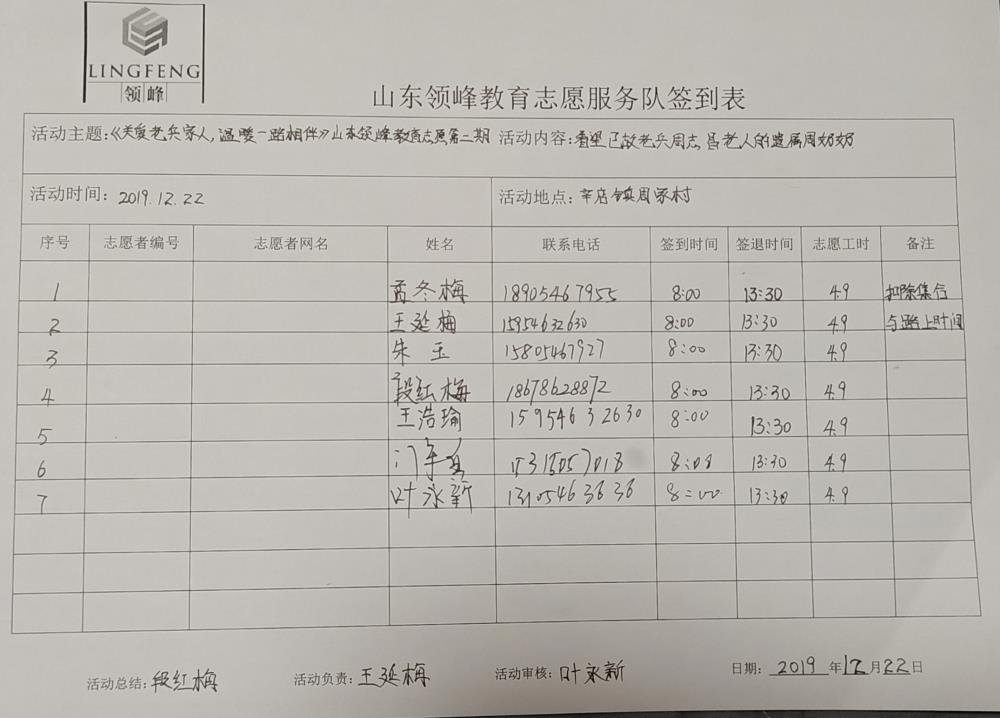 LINGFENG
领峰
山东领峰教育志愿服务队签到表
活动主题:《关爱老兵家人,温暖一路相伴》山东领峰教育志愿第二期 活动内容:看望已故老兵周志昌老人的遗属周奶奶
活动时间: 2019.12.22 活动地点: 辛店镇周家村
序号 志愿者编号 志愿者网名 姓名 联系电话 签到时间 签退时间 志愿工时 备注
1 孟冬梅 18905467955 8:00 13:30 4.9 扣除集合
2 王延梅 15954632630 8:00 13:30 4.9 与路上时间
3 朱玉 15805467927 8:00 13:30 4.9
4 段红梅 18678628872 8:00 13:30 4.9
5 王浩瑜 15954632630 8:00 13:30 4.9
6 8:08 13:30 4.9
7 叶永新 13105463636 8:00 13:30 4.9
活动总结: 段红梅 活动负责: 王延梅 活动审核: 叶永新 日期: 2019 年 12 月 22 日